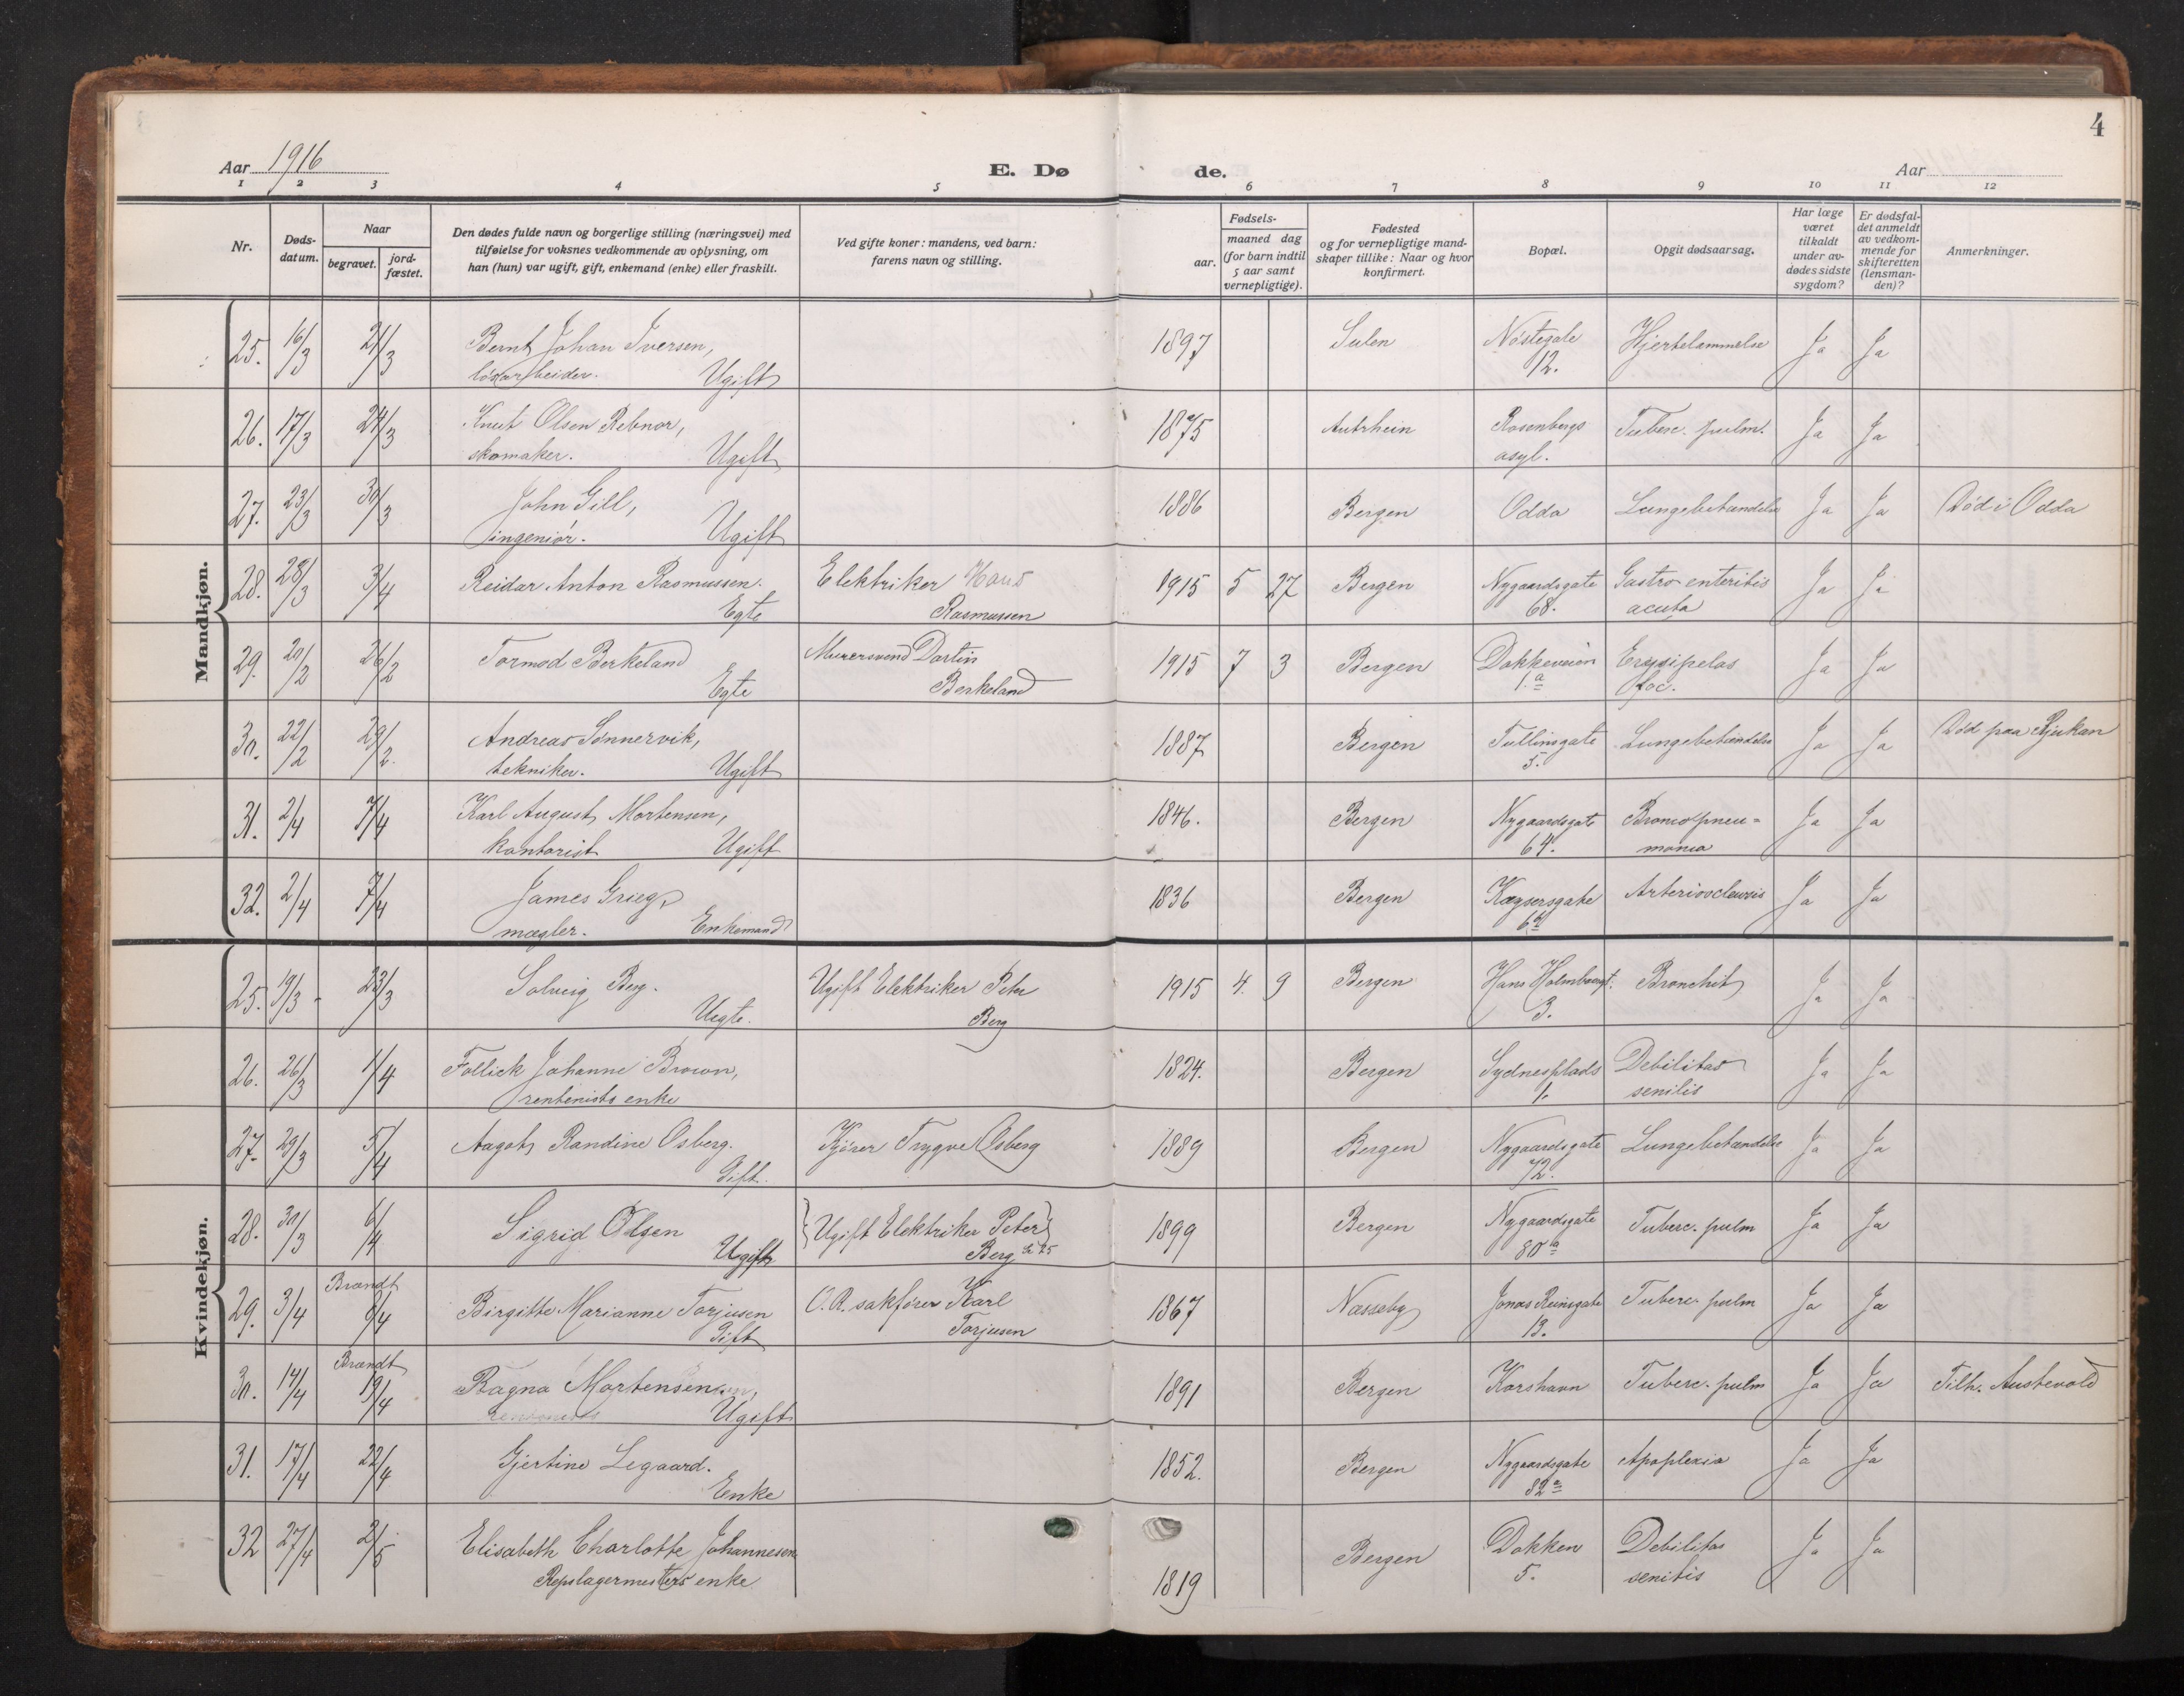 4
Aar 1916
E. Dø de.
Aar
1 2 3 4 5 6 7 8 9 10 11 12
Nr.
Døds-
datum.
Naar
begravet.
jord-
fæstet.
Den dødes fulde navn og borgerlige stilling (næringsvei) med
tilføielse for voksnes vedkommende av oplysning, om
han (hun) var ugift, gift, enkemand (enke) eller fraskilt.
Ved gifte koner: mandens, ved barn:
farens navn og stilling.
Fødsels-
aar.
maaned dag
(for barn indtil
5 aar samt
vernepligtige).
Fødested
og for vernepligtige mand-
skaper tillike: Naar og hvor
konfirmert.
Bopæl.
Opgit dødsaarsag.
Har læge
været
tilkaldt
under av-
dødes sidste
sygdom?
Er dødsfal-
det anmeldt
av vedkom-
mende for
skifteretten
(lensman-
den)?
Anmerkninger.
Mandkjøn.
25. 16/3 21/3 Bernt Johan Iversen, 1897 Sulen Nøstegate Hjertelammelse Ja Ja
løsarbeider. Ugift 12.
26. 17/3 24/3 Knut Olsen Rebnor, 1875 Autrhein Rosenbergs Tuberc. pulm. Ja Ja
skomaker. Ugift asyl.
27. 23/3 30/3 John Gill, 1886 Bergen Odda Lungebetændelse Ja Ja Død i Odda
ingeniør. Ugift
28. 28/3 3/4 Reidar Anton Rasmussen. Elektriker Hans 1915 5 27 Bergen Nygaardsgate Gastro enteritis Ja Ja
Egte Rasmussen 68. acuta
29. 20/2 26/2 Tormod Berkeland Murersvend Dortin 1915 7 3 Bergen Dokkeveien Erysipelas Ja Ja
Egte Berkeland 1.a foc.
30. 22/2 29/2. Andreas Sønnervik, 1887 Bergen Tullinsgate Lungebetændelse Ja Ja Død paa Rjukan
tekniker. Ugift 5.
31. 2/4 7/4 Karl August Mortensen, 1846. Bergen Nygaardsgate Broncopneu= Ja Ja
Kontorist Ugift 64. monia
32. 2/4 7/4 James Grieg, 1836 Bergen Kaysersgate Arteriosclerosis Ja Ja
mægler. Enkemand 6a
Kvindekjøn.
25. 19/3 23/3 Solveig Berg. Ugift Elektriker Peter 1915 4. 9 Bergen Hans Holmboesgt. Bronchit Ja Ja
Uegte. Berg 3.
26. 26/3 1/4 Follick Johanne Brown, 1824. Bergen Sydnesplads Debilitas Ja Ja
rentenists enke 1. senilis
27. 29/3 5/4 Aagot Randine Osberg. Kjører Trygve Osberg 1889 Bergen Nygaardsgate Lungebetændelse Ja Ja
Gift. 72.
28. 30/3 6/4 Sigrid Olsen {Ugift Elektriker Peter} 1899 Bergen Nygaardsgate Tuberc. pulm Ja Ja
Ugift Berg 25 80a
Brændt
29. 3/4 8/4 Birgitte Marianne Torjusen O.R. sakfører Karl 1867 Næsseby Jonas Reinsgate Tuberc. pulm Ja Ja
Gift Torjusen 13.
Brændt
30. 14/4 19/4 Ragna Mortensen, 1891 Bergen Korshavn Tuberc. pulm Ja Ja Tilh. Austevold
Ugift
31. 17/4 22/4 Gjertine Legaard. 1852. Bergen Nygaardsgate Apoplexia Ja Ja
Enke 82a
32 27/4 2/5 Elisabeth Charlotte Johannesen 1819 Bergen Dokken Debilitas Ja Ja
Repslagermesters enke 5. senilis